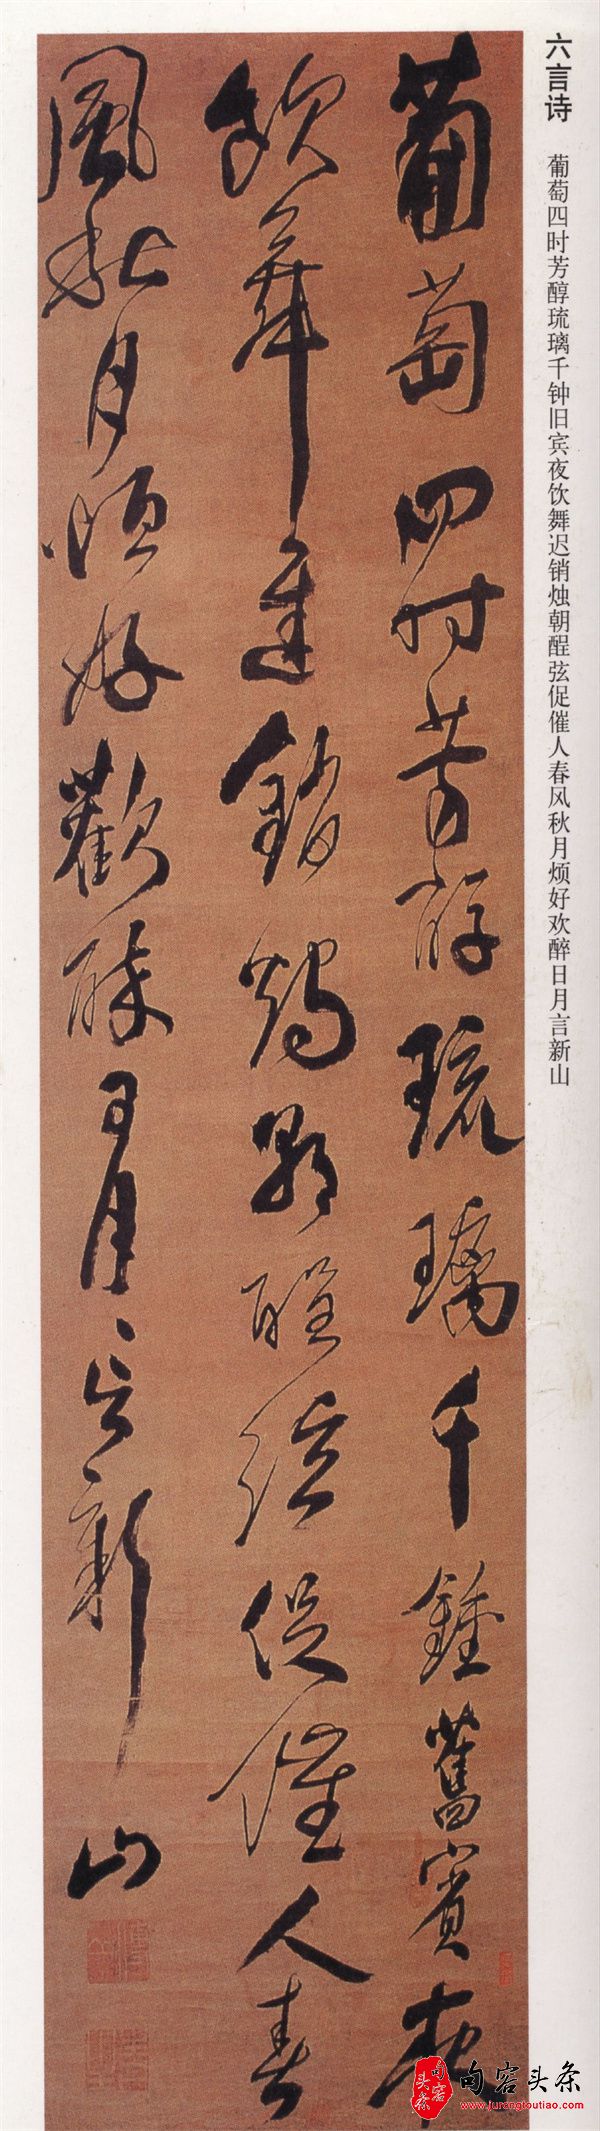 六言诗
葡萄四时芳醇琉璃千钟旧宾夜饮舞迟销烛朝醒弦促催人春风秋月烦好欢醉日月言新山
葡萄四时芳醇琉璃千鍾舊賓夜
飲舞遲銷燭朝醒弦促催人春
風秋月恒好歡醉日月言新
山
句容头条
句容头条
www.jurongtoutiao.com